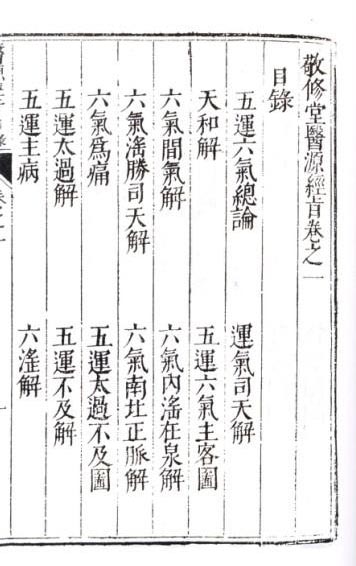 敬修堂醫源經旨卷之一
目錄
五運六氣總論 運氣司天解
天和解 五運六氣主客圖
六氣間氣解 六氣內淫在泉解
六氣淫勝司天解 六氣南北正脈解
六氣爲病 五運太過不及圖
五運太過解 五運不及解
五運主病 六淫解